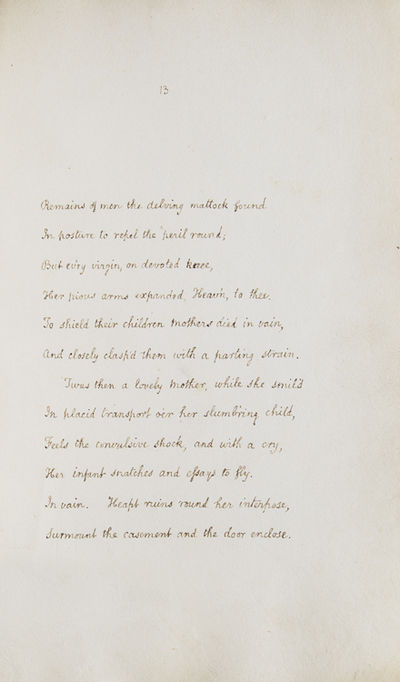 13
Remains of men the delving mattock found
In posture to repel the peril round;
But ev'ry virgin, on devoted knee,
Her pious arms expanded, Heav'n, to thee.
To shield their children mothers died in vain,
And closely clasp'd them with a parting strain.
'Twas then a lovely mother, while she smil'd
In placid transport o'er her slumb'ring child,
Feels the convulsive shock, and with a cry,
Her infant snatches and essays to fly.
In vain. Heapt ruins round her interpose,
Surmount the casement and the door enclose.